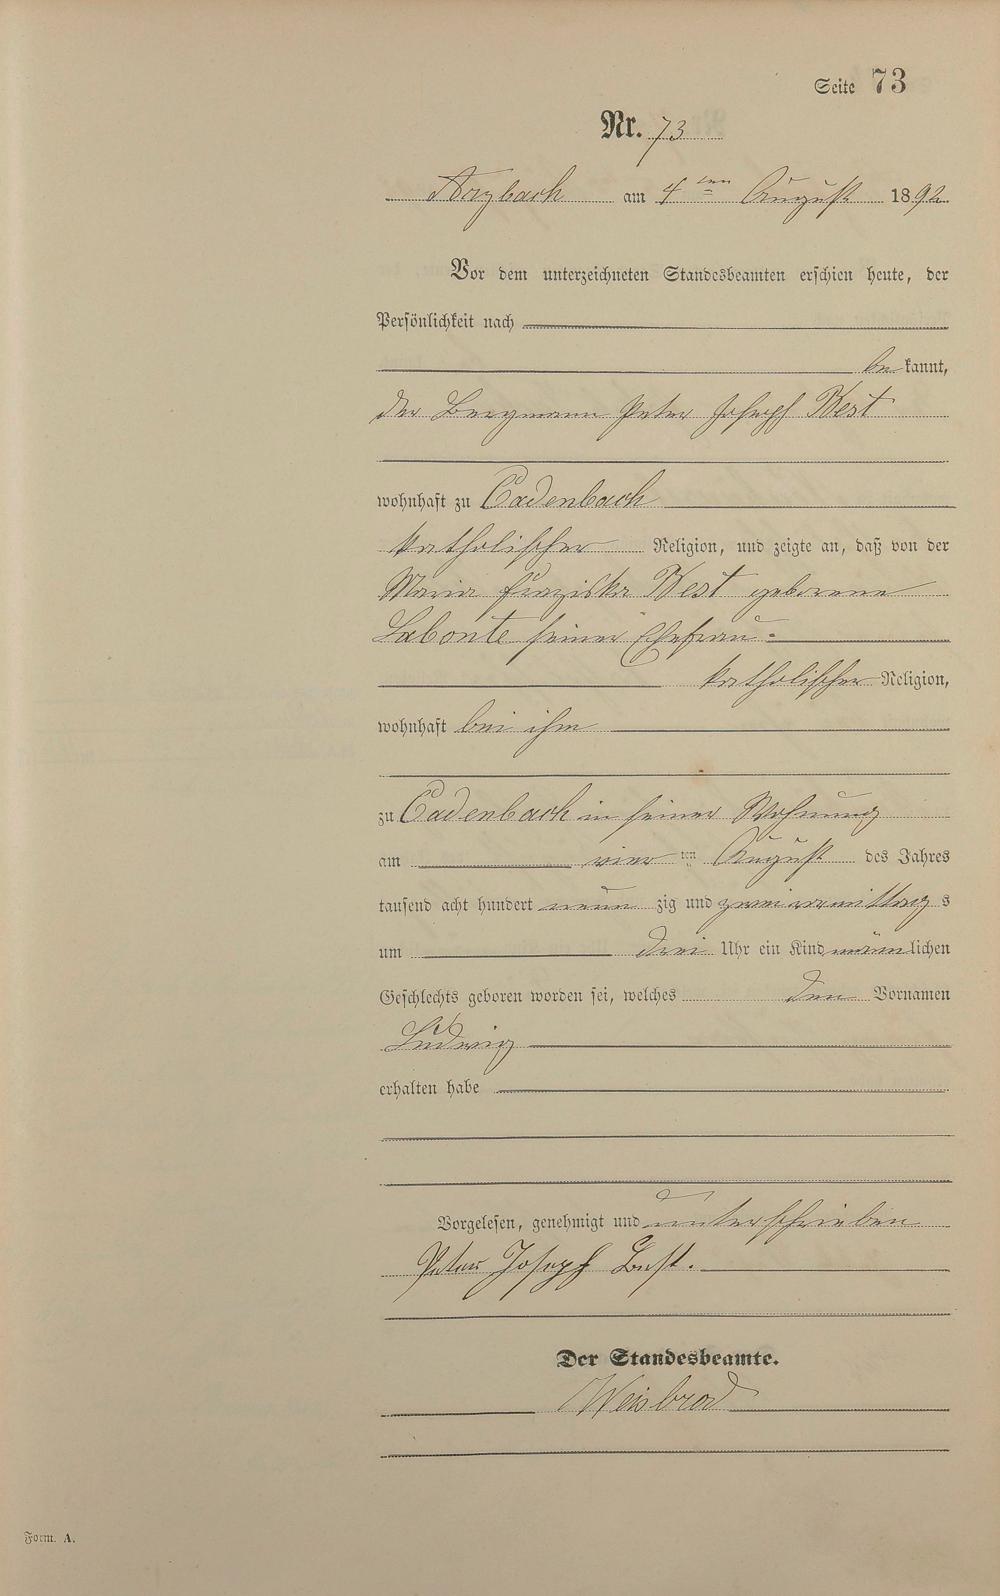 Seite 73
Nr. 73
Arzbach am 4ten August 1892
Vor dem unterzeichneten Standesbeamten erschien heute, der
Persönlichkeit nach
bekannt,
der Bergmann Peter Joseph Best
wohnhaft zu Cadenbach
katholischer Religion, und zeigte an, daß von der
Maria Franziska Best geborene
Labonte seiner Ehefrau
katholischer Religion,
wohnhaft bei ihm
zu Cadenbach in seiner Wohnung
am vier ten August des Jahres
tausend acht hundert neun zig und zwei vormittag s
um drei Uhr ein Kind männlichen
Geschlechts geboren worden sei, welches den Vornamen
Ludwig
erhalten habe
Vorgelesen, genehmigt und unterschrieben
Peter Joseph Best.
Der Standesbeamte.
Weisbrod
Form. A.